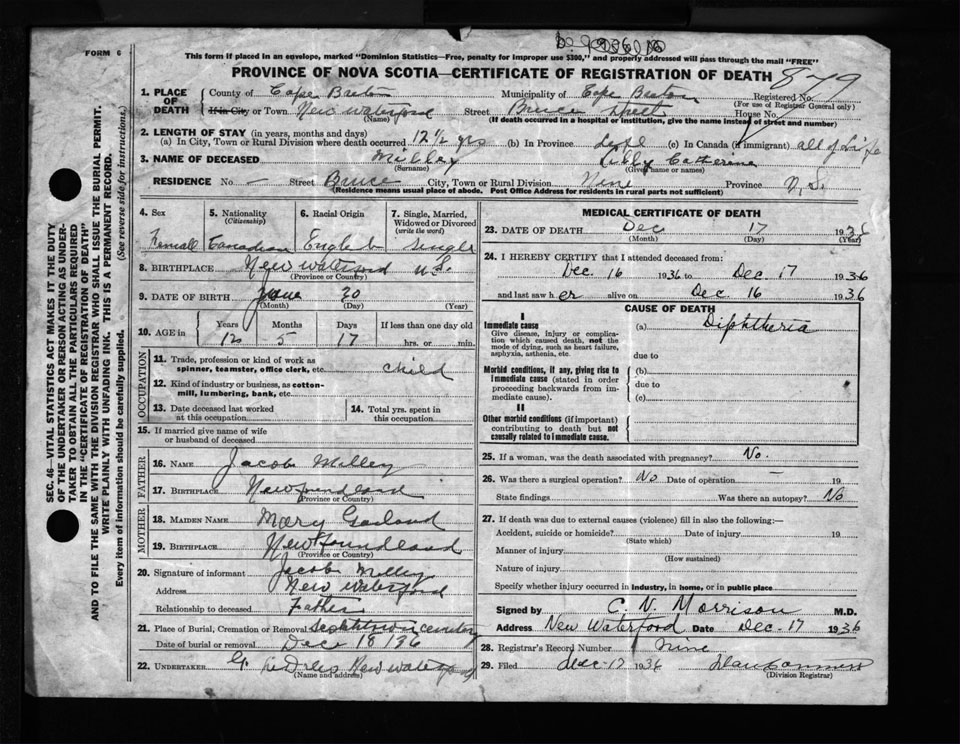 FORM 6
This form if placed in an envelope, marked "Dominion Statistics—Free, penalty for improper use $300," and properly addressed will pass through the mail "FREE"
PROVINCE OF NOVA SCOTIA—CERTIFICATE OF REGISTRATION OF DEATH
879
1. PLACE OF DEATH
County of Cape Breton Municipality of Cape Breton Registered No.
(For use of Registrar General only)
If in City or Town New Waterford Street Bruce Street House No.
(Name) (If death occurred in a hospital or institution, give the name instead of street and number)
2. LENGTH OF STAY (in years, months and days)
(a) In City, Town or Rural Division where death occurred 12½ yrs (b) In Province Life (c) In Canada (if immigrant) all of Life
3. NAME OF DECEASED Milley Lilly Catherine
(Surname) (Given name or names)
RESIDENCE No. — Street Bruce City, Town or Rural Division Nine Province N.S.
(Residence means usual place of abode. Post Office Address for residents in rural parts not sufficient)
4. Sex 5. Nationality (Citizenship) 6. Racial Origin 7. Single, Married, Widowed or Divorced (write the word)
Female Canadian English Single
8. BIRTHPLACE New Waterford N.S.
(Province or Country)
9. DATE OF BIRTH June 30
(Month) (Day) (Year)
10. AGE in Years Months Days If less than one day old
12 5 17 hrs. or min.
OCCUPATION
11. Trade, profession or kind of work as spinner, teamster, office clerk, etc. child
12. Kind of industry or business, as cotton-mill, lumbering, bank, etc.
13. Date deceased last worked at this occupation
14. Total yrs. spent in this occupation
15. If married give name of wife or husband of deceased
FATHER
16. NAME Jacob Milley
17. BIRTHPLACE Newfoundland
(Province or Country)
MOTHER
18. MAIDEN NAME Mary Garland
19. BIRTHPLACE Newfoundland
(Province or Country)
20. Signature of informant Jacob Milley
Address New Waterford
Relationship to deceased Father
21. Place of Burial, Cremation or Removal Scotchtown cemetery
Date of burial or removal Dec 18 1936
22. UNDERTAKER G. New Waterford
(Name and address)
MEDICAL CERTIFICATE OF DEATH
23. DATE OF DEATH Dec 17 1936
(Month) (Day) (Year)
24. I HEREBY CERTIFY that I attended deceased from:
Dec. 16 1936 to Dec. 17 1936
and last saw her alive on Dec. 16 1936
CAUSE OF DEATH
I
Immediate cause (a) Diphtheria
Give disease, injury or complication which caused death, not the mode of dying, such as heart failure, asphyxia, asthenia, etc.
due to
Morbid conditions, if any, giving rise to immediate cause (stated in order proceeding backwards from immediate cause).
(b)
due to
(c)
II
Other morbid conditions (if important) contributing to death but not causally related to immediate cause.
25. If a woman, was the death associated with pregnancy? No.
26. Was there a surgical operation? No Date of operation 19
State findings Was there an autopsy? No
27. If death was due to external causes (violence) fill in also the following:—
Accident, suicide or homicide? Date of injury 19
(State which)
Manner of injury
(How sustained)
Nature of injury
Specify whether injury occurred in industry, in home, or in public place
Signed by C. N. Morrison M.D.
Address New Waterford Date Dec-17 1936
28. Registrar's Record Number Nine
29. Filed Dec-17 1936
(Division Registrar)
SEC. 46—VITAL STATISTICS ACT MAKES IT THE DUTY
OF THE UNDERTAKER OR PERSON ACTING AS UNDER-
TAKER TO OBTAIN ALL THE PARTICULARS REQUIRED
IN THE "CERTIFICATE OF REGISTRATION OF DEATH"
AND TO FILE THE SAME WITH THE DIVISION REGISTRAR WHO SHALL ISSUE THE BURIAL PERMIT.
WRITE PLAINLY WITH UNFADING INK. THIS IS A PERMANENT RECORD.
Every item of information should be carefully supplied. (See reverse side for instructions.)